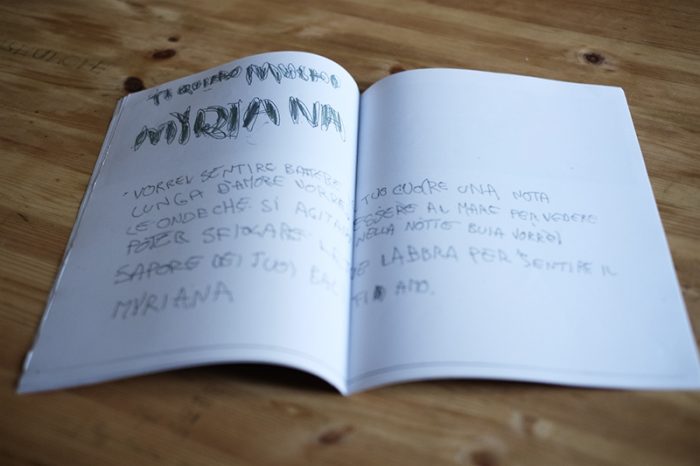 TI QUIERO MUCHO
MYRIANA
VORREI SENTIRE BATTERE TUO CUORE UNA NOTA
LUNGA D'AMORE VORREI ESSERE AL MARE PER VEDERE
LE ONDE CHE SI AGITANO NELLA NOTTE BUIA VORREI
POTER LABBRA PER SENTIRE IL
SAPORE DEI TUOI BACI
MYRIANA TI AMO.